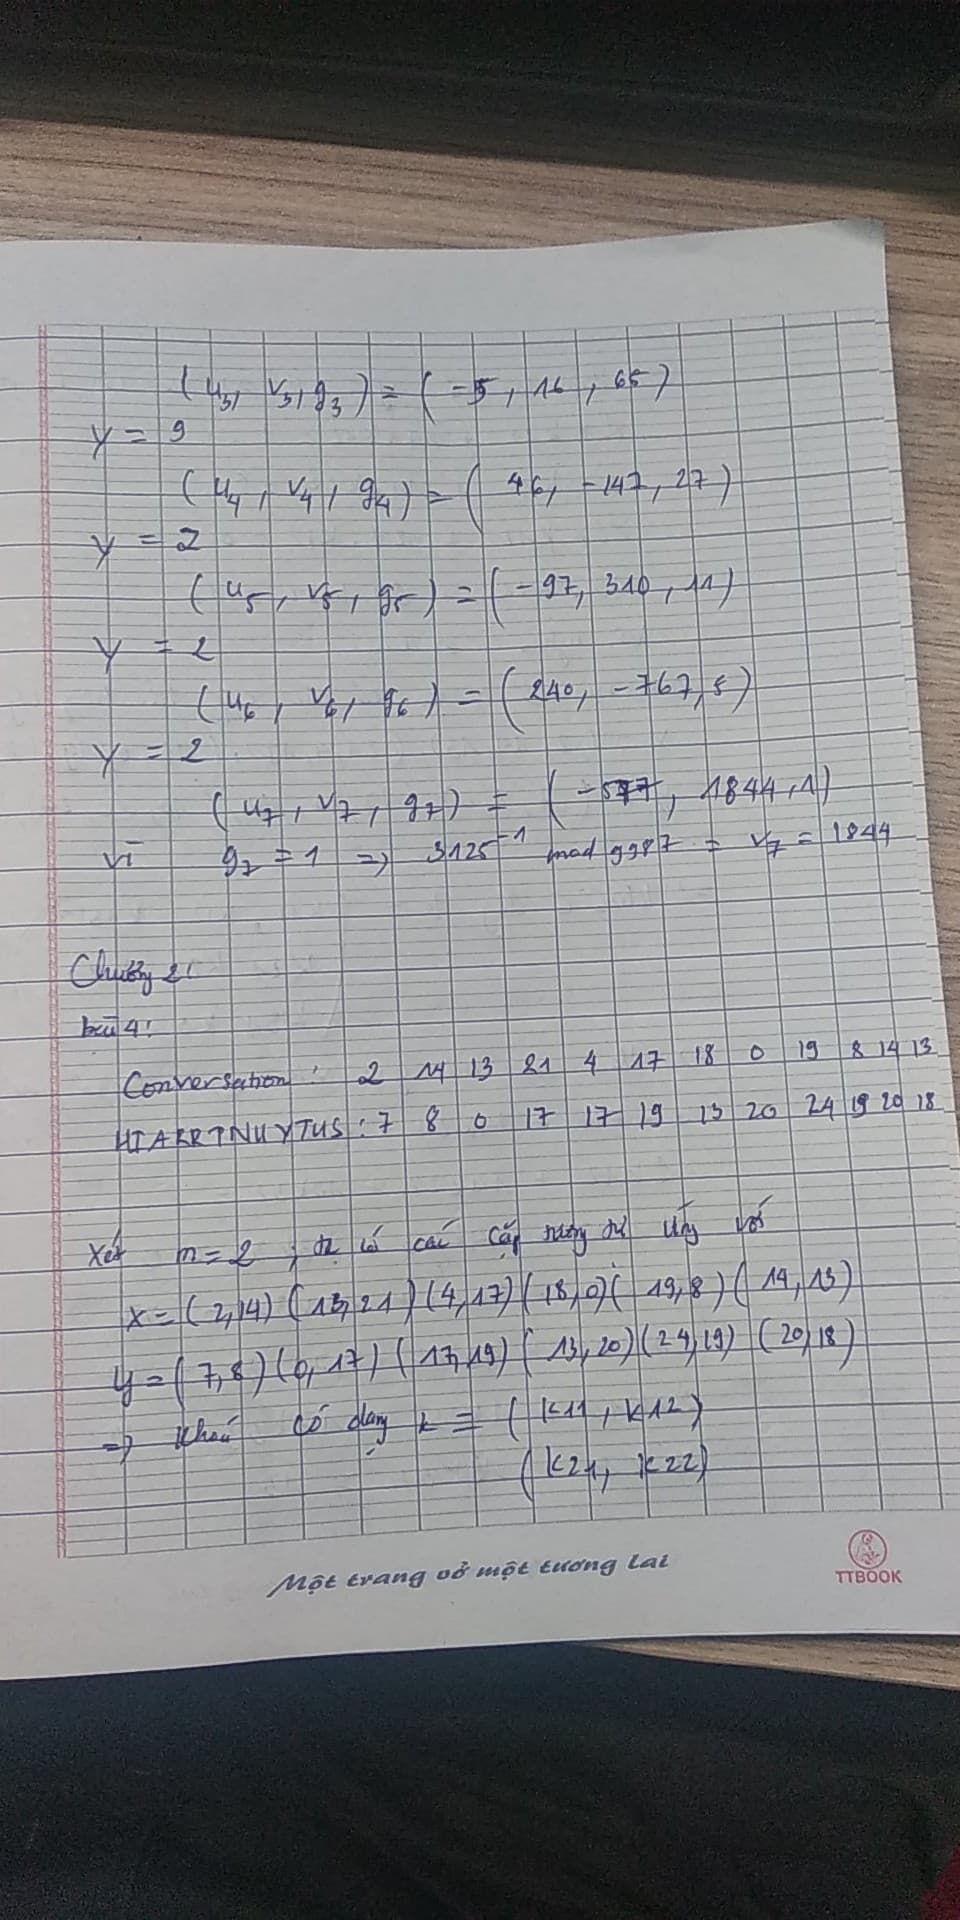 (u3, v3, g3) = (-5, 16, 65)
y = 9
(u4, v4, g4) = (46, -147, 27)
y = 2
(u5, v5, g5) = (-97, 310, 11)
y = 2
(u6, v6, g6) = (240, -767, 5)
y = 2
(u7, v7, g7) = (-577, 1844, 1)
vì g7 = 1 => 3125^-1 mod 9987 = v7 = 1844
Chương 2:
bài 4:
Conversation: 2 14 13 21 4 17 18 0 19 8 14 13
HIARRTNUYTUS: 7 8 0 17 17 19 13 20 24 19 20 18
Xét m = 2, ta có các cặp tương ứng với
x = (2,14) (13,21) (4,17) (18,0) (19,8) (14,13)
y = (7,8) (0,17) (17,19) (13,20) (24,19) (20,18)
=> khoá có dạng k = (k11, k12)
(k21, k22)
Một trang vở một tương lai
TTBOOK